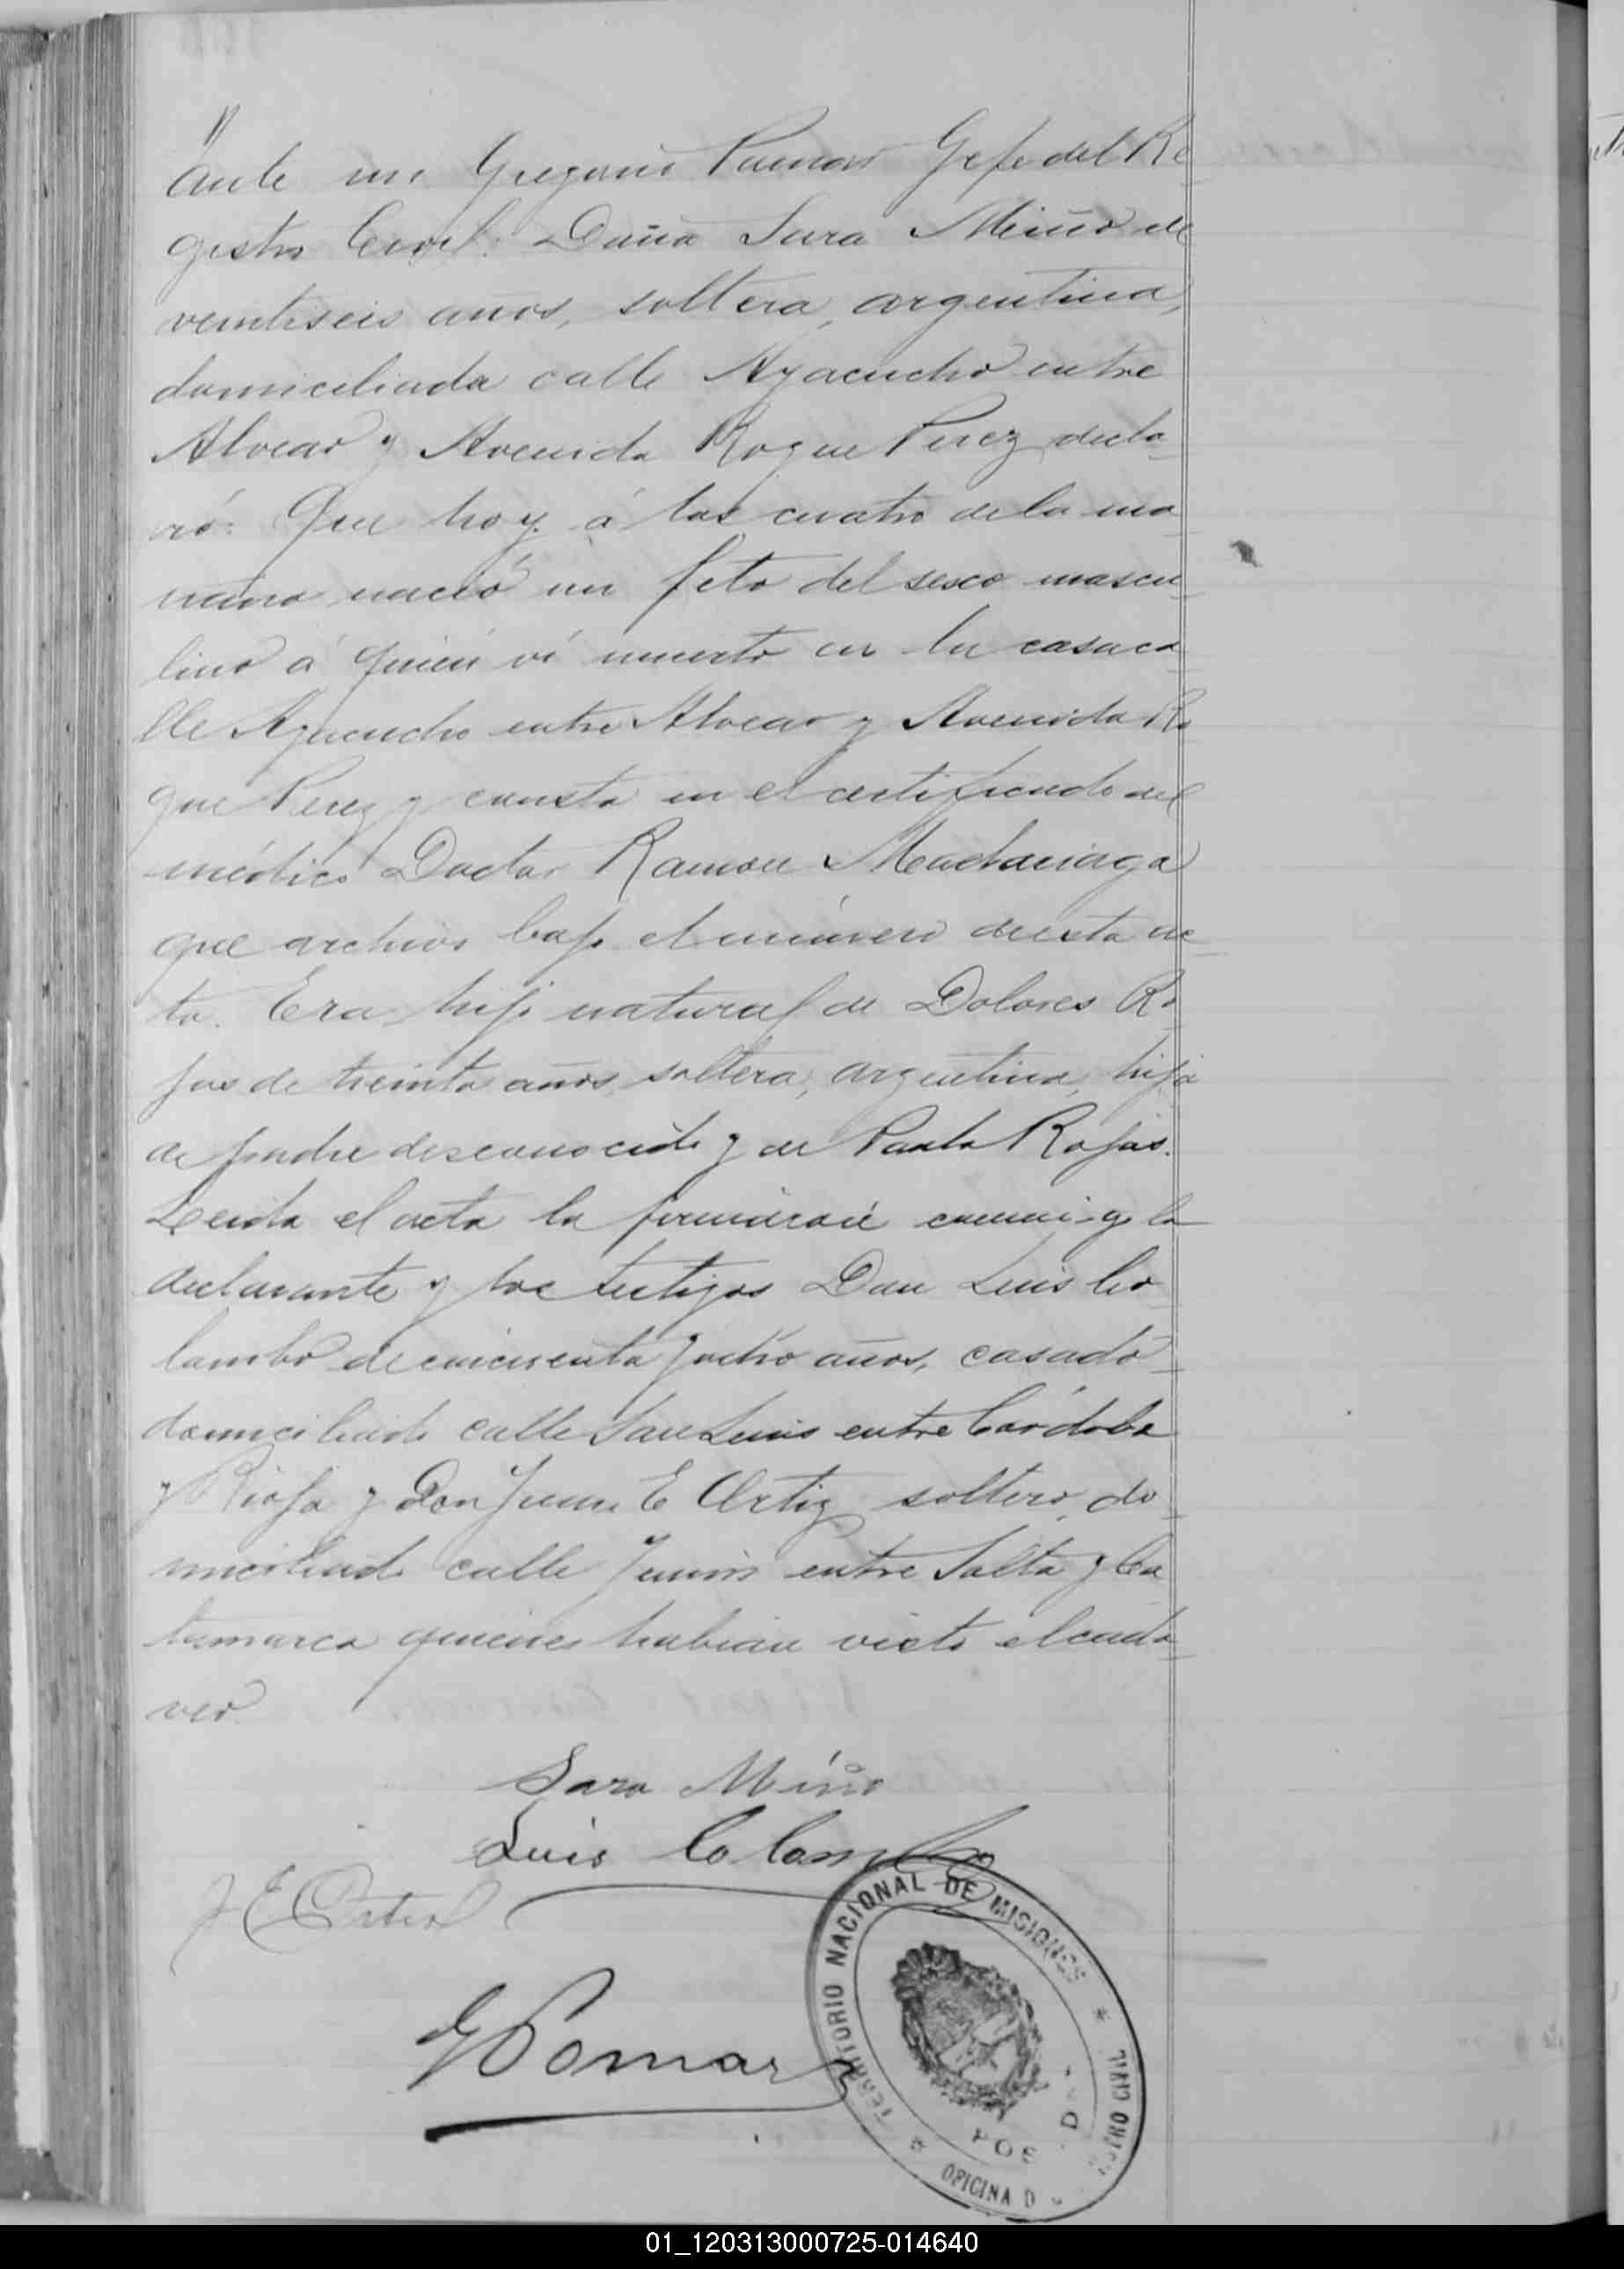 "
ante mi Gregorio Pomar Gefe del Re
gistro Civil: Doña Sara Miño de
veintiseis años, soltera, argentina,
domiciliada calle Ayacucho entre
Alvear y Avenida Roque Perez decla-
ró: Que hoy á las cuatro de la ma
ñana nació un feto del sexo mascu
lino á quién ví muerto en la casa ca
lle Ayacucho entre Alvear y Avenida Ro
que Perez y consta en el certificado del
médico Doctor Ramon Madariaga
que archivo bajo el número de esta ac
ta. Era hijo natural de Dolores Ro
jas de treinta años, soltera, argentina, hija
de padre desconocido y de Paula Rojas.
Leida el acta la firmaron conmigo la
declarante y los testigos Don Luis Co
lombo de cincuenta y ocho años, casado
domiciliado calle San Luis entre Córdoba
y Rioja y Don Juan E Ortiz soltero, do
miciliado calle Junin entre Salta y Ca
tamarca quienes habian visto el cada
ver
Sara Miño
Luis Colombo
J E Ortiz
G Pomar
TERRITORIO NACIONAL DE MISIONES
OFICINA D
01_120313000725-014640